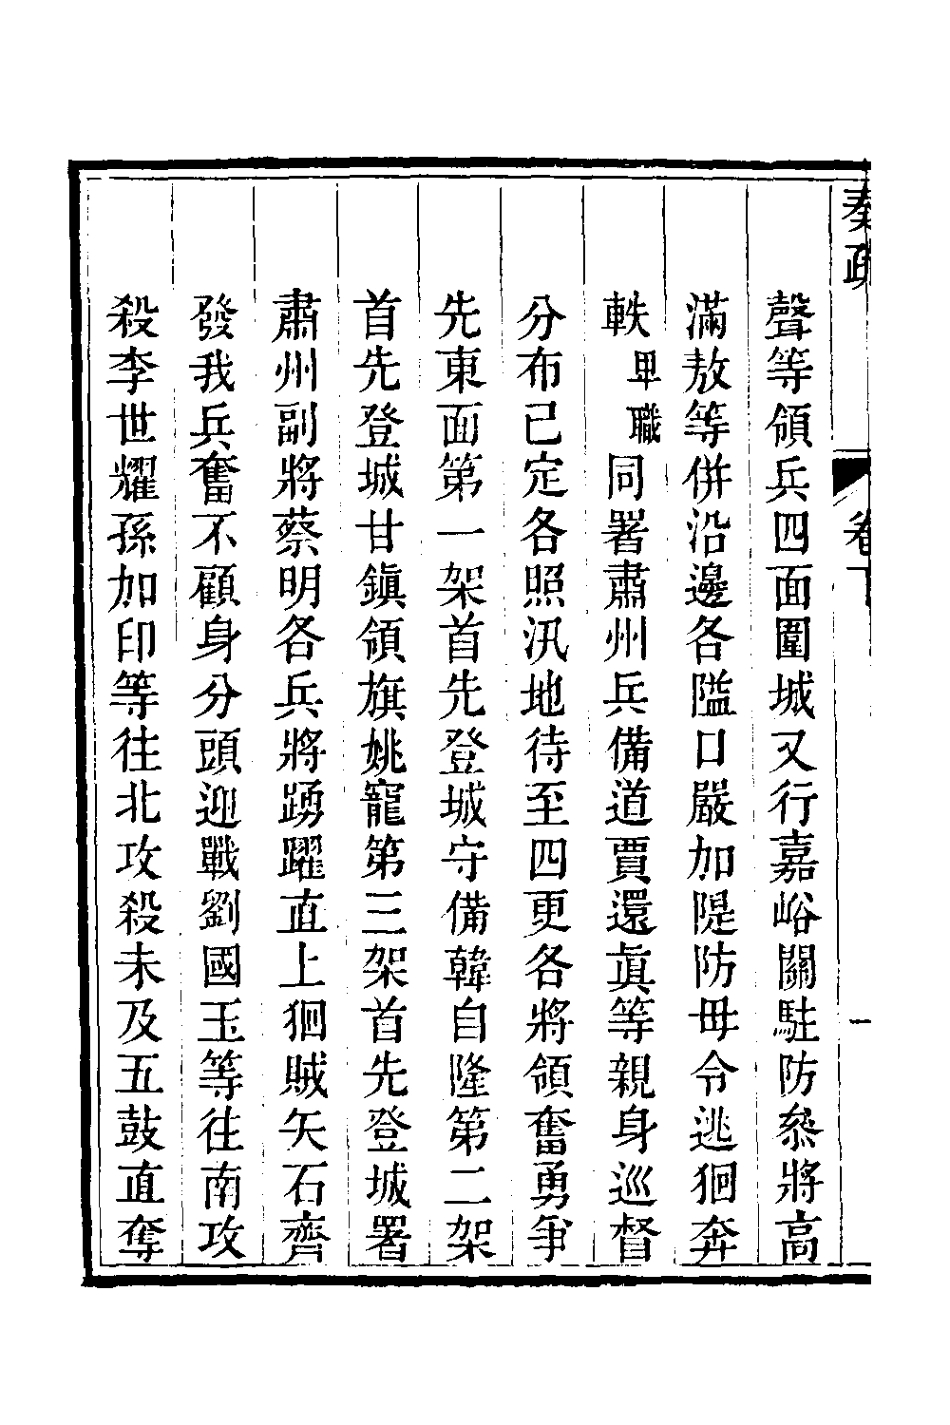 奏疏 卷下 一
聲等領兵四面圍城又行嘉峪關駐防叅將高
滿敖等併沿邊各隘口嚴加隄防毋令逃徊奔
軼卑職同署肅州兵備道賈還眞等親身巡督
分布已定各照汛地待至四更各將領奮勇爭
先東面第一架首先登城守備韓自隆第二架
首先登城甘鎭領旗姚寵第三架首先登城署
肅州副將蔡明各兵將踴躍直上徊賊矢石齊
發我兵奮不顧身分頭迎戰劉國玉等往南攻
殺李世耀孫加印等往北攻殺未及五鼓直奪